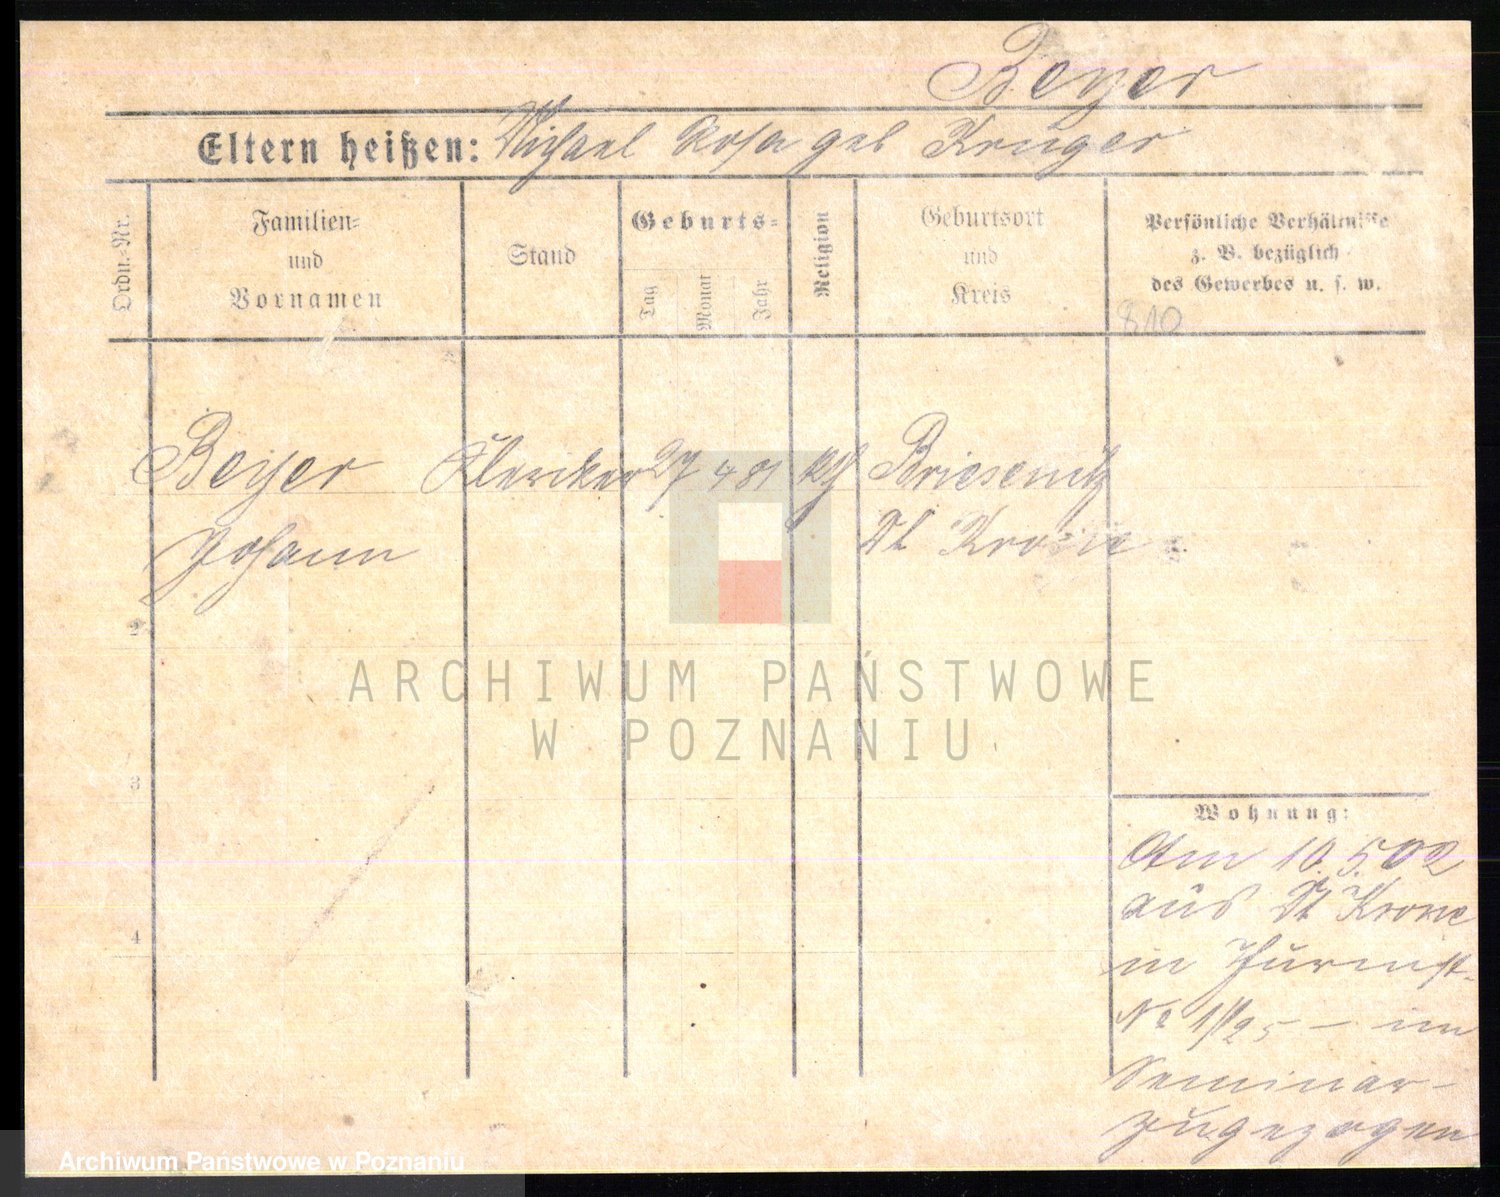 Beyer
Eltern heißen: Michael Rosa geb Krüger
Ordn.-Nr.
Familien=
und
Vornamen
Stand
Geburts=
Tag
Monat
Jahr
Religion
Geburtsort
und
Kreis
Persönliche Verhältnisse
z. B. bezüglich
des Gewerbes u. s. w.
810
Beyer Kleriker 27 4 81 kth Briesenitz
Johann Dt Krone
2
ARCHIWUM PAŃSTWOWE
W POZNANIU
3
4
Wohnung:
Am 10.5.02
aus Dt Krone
in Thurmst.
No 1/25 - im
Seminar-
zugezogen
Archiwum Panstwowe w Poznaniu